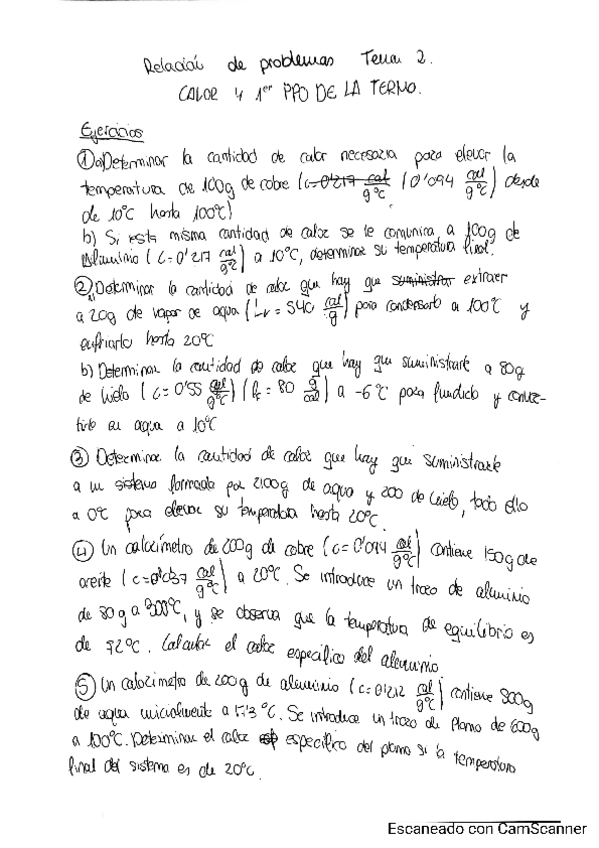 Relación de problemas Tema 2.
CALOR Y 1er PPO DE LA TERMO.
Ejercicios
① a) Determinar la cantidad de calor necesaria para elevar la
temperatura de 100g de cobre (c=0'217 cal/g°C (0'094 cal/g°C) desde
de 10°C hasta 100°C)
b) Si esta misma cantidad de calor se le comunica a 100g de
Aluminio (c=0'217 cal/g°C) a 10°C, determinar su temperatura final.
② a) Determinar la cantidad de calor que hay que suministrar extraer
a 20g de vapor de agua (Lv = 540 cal/g) para condensarlo a 100°C y
enfriarlo hasta 20°C
b) Determinar la cantidad de calor que hay que suministrarle a 80g
de hielo (c=0'55 cal/g°C) (Lf = 80 g/cal) a -6°C para fundirlo y conver-
tirlo en agua a 10°C
③ Determinar la cantidad de calor que hay que suministrarle
a un sistema formado por 2100g de agua y 200 de hielo, todo ello
a 0°C para elevar su temperatura hasta 20°C.
④ Un calorímetro de 200g de cobre (c=0'094 cal/g°C) contiene 150g de
aceite (c=0'37 cal/g°C) a 20°C. Se introduce un trozo de aluminio
de 80g a 300°C, y se observa que la temperatura de equilibrio es
de 72°C. Calcular el calor específico del aluminio
⑤ Un calorímetro de 200g de aluminio (c=0'212 cal/g°C) contiene 500g
de agua inicialmente a 17'3 °C. Se introduce un trozo de plomo de 600g
a 100°C. Determinar el calor específico del plomo si la temperatura
final del sistema es de 20°C.
Escaneado con CamScanner